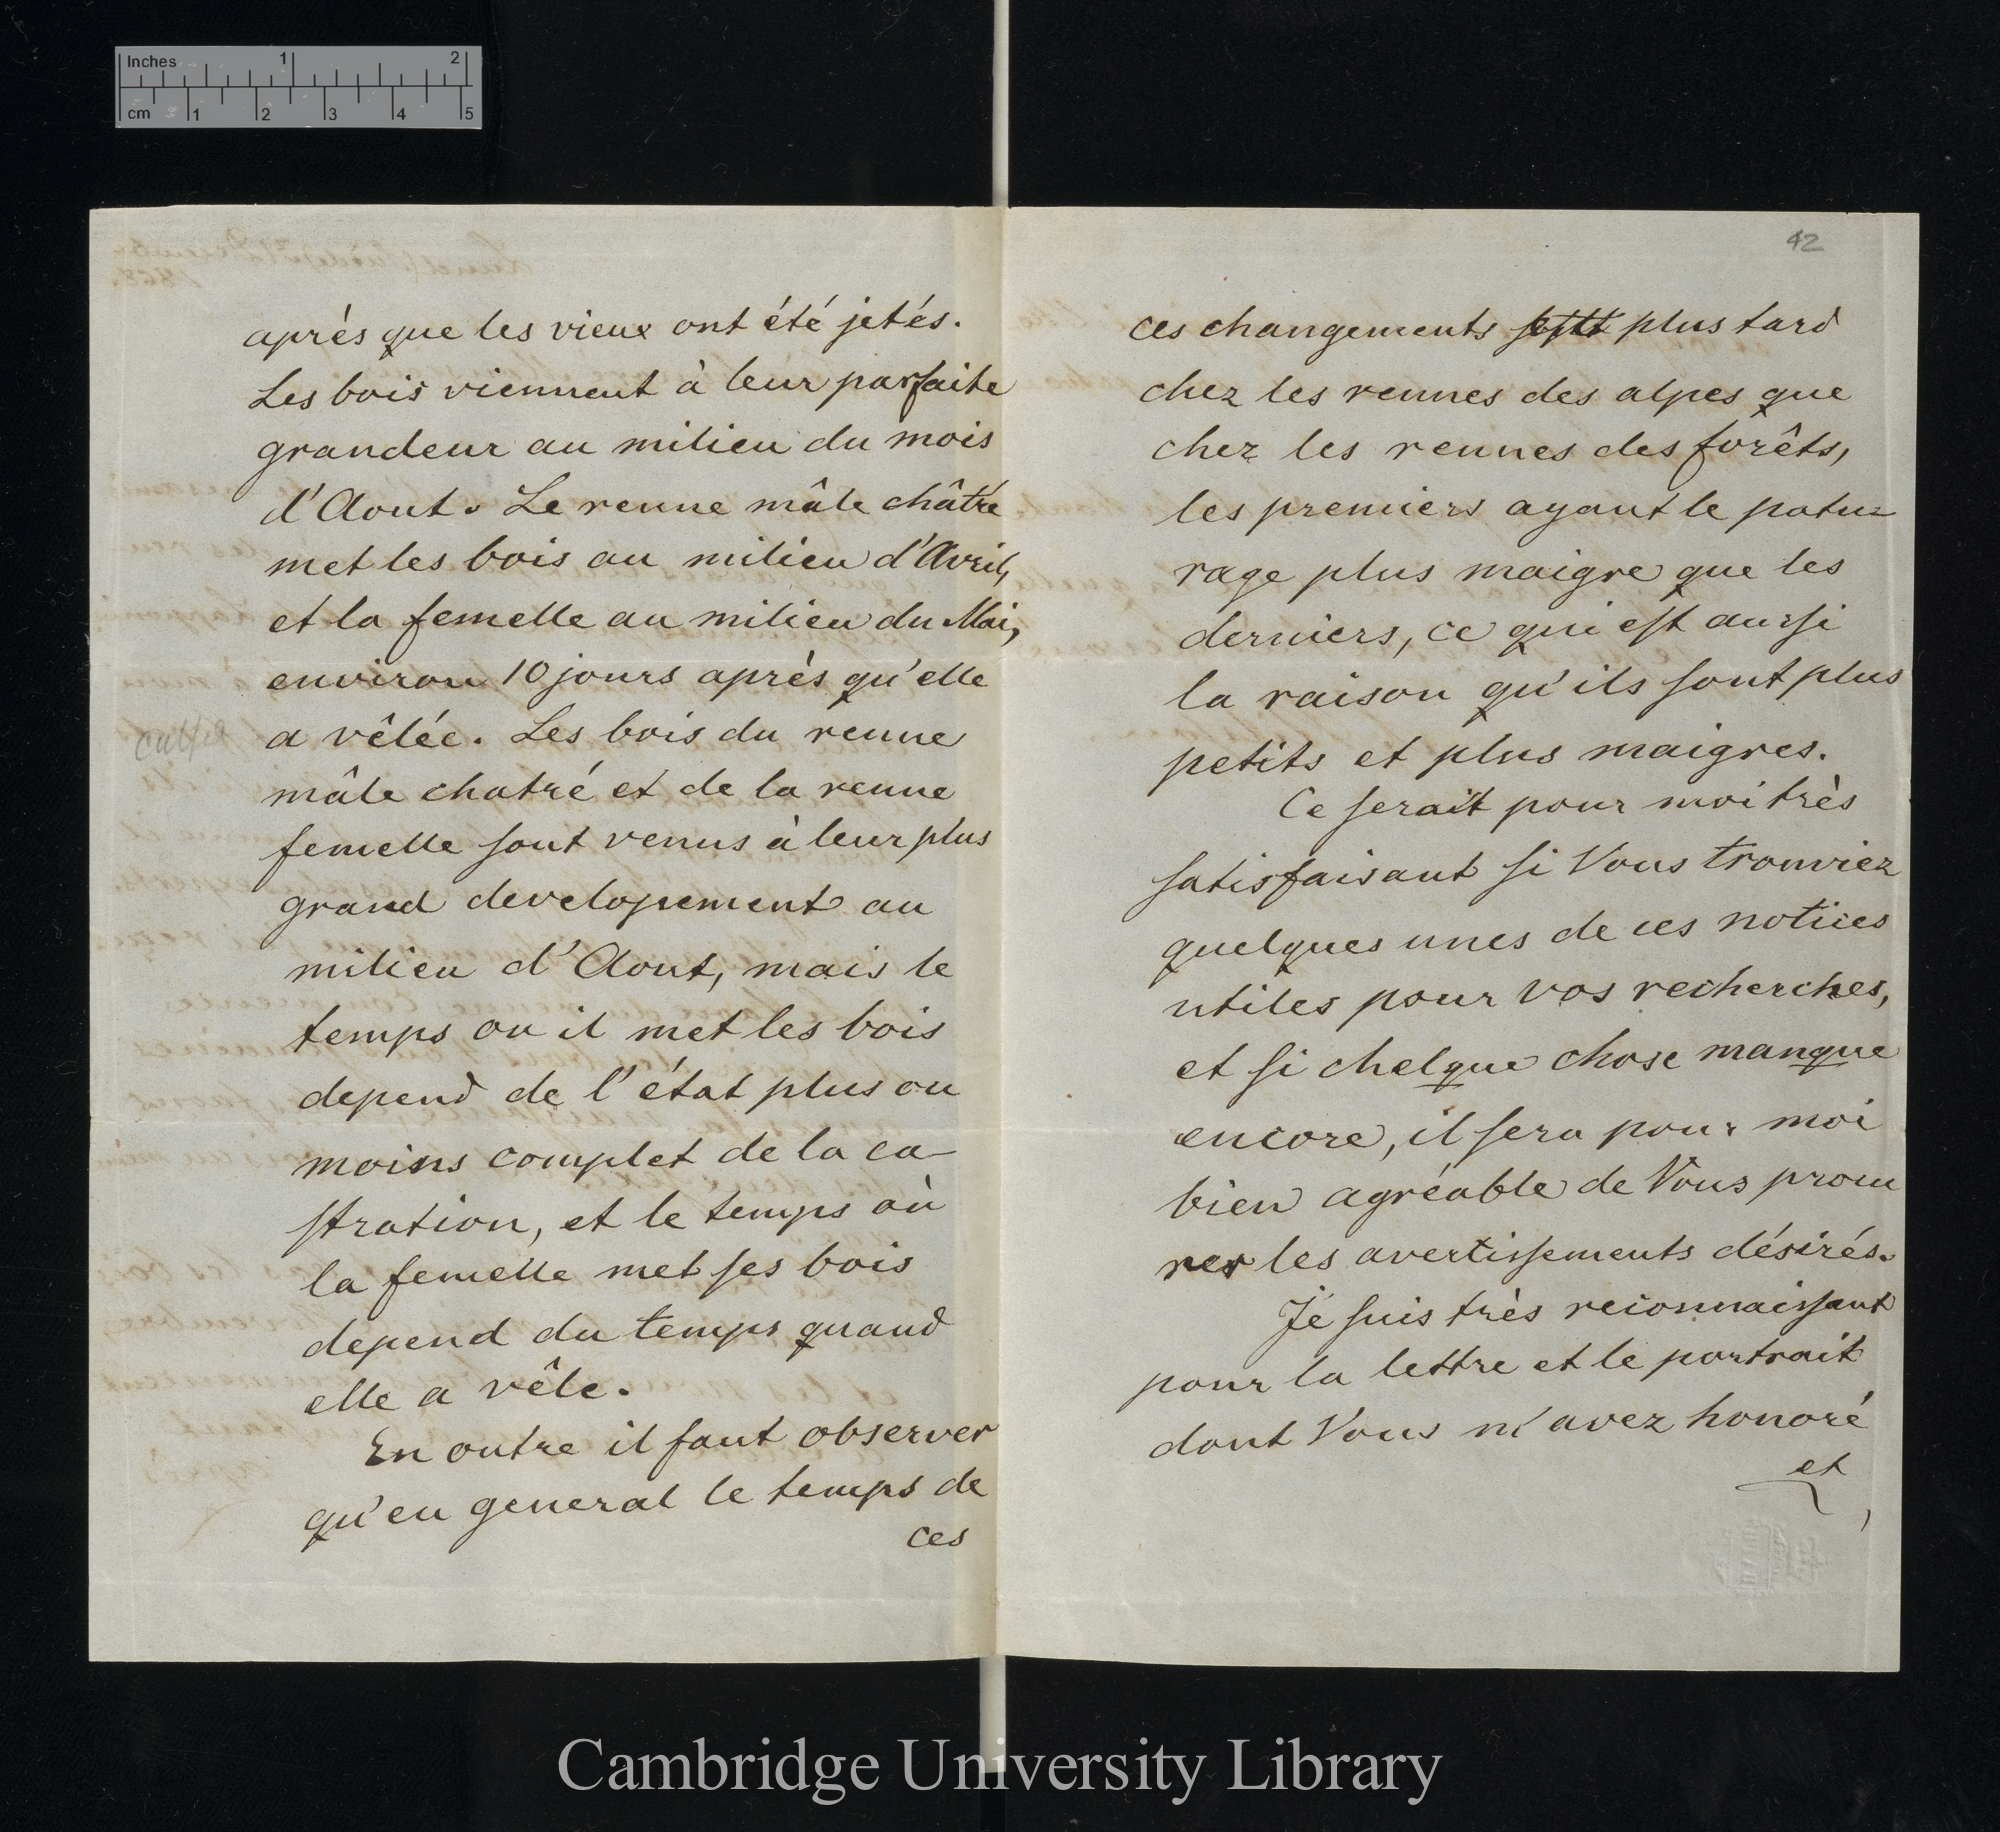 Inches 1 2
cm 1 2 3 4 5
après que les vieux ont été jetés.
Les bois viennent à leur parfaite
grandeur au milieu du mois
d'Aout. Le renne mâle châtré
met les bois au milieu d'Avril,
et la femelle au milieu du Mai,
environ 10 jours après qu'elle
a vêlée. Les bois du renne
mâle chatré et de la renne
femelle sont venus à leur plus
grand developement au
milieu d'Aout, mais le
temps ou il met les bois
depend de l'état plus ou
moins complet de la ca-
stration, et le temps où
la femelle met ses bois
depend du temps quand
elle a vêle.
En outre il faut observer
qu'en general le temps de
ces
42
ces changements plus tard
chez les rennes des alpes que
chez les rennes des forêts,
les premiers ayant le patu=
rage plus maigre que les
derniers, ce qui est aussi
la raison qu'ils sont plus
petits et plus maigres.
Ce serait pour moi très
satisfaisant si Vous trouviez
quelques unes de ces notices
utiles pour vos recherches,
et si chelque chose manque
encore, il sera pour moi
bien agréable de Vous procu
rer les avertissements désirés.
Je suis très reconnaissant
pour la lettre et le portrait
dont Vous m'avez honoré
et
Cambridge University Library